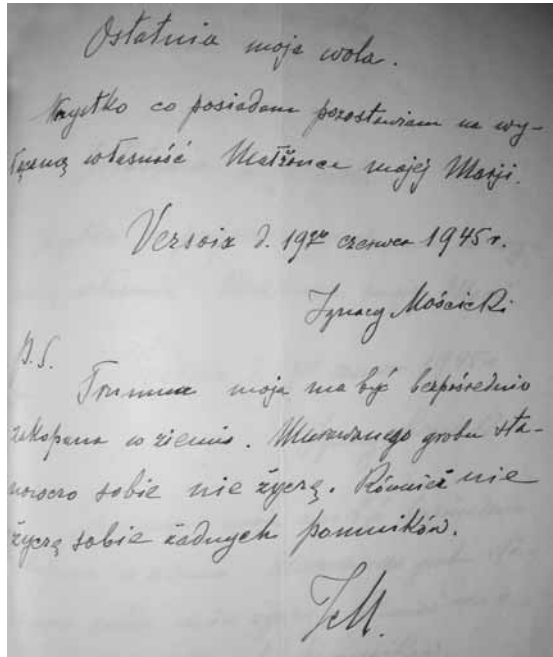 Ostatnia moja wola.
Wszystko co posiadam pozostawiam na wy-
łączną własność Małżonce mojej Marji.
Versoix d. 19go czerwca 1945 r.
Ignacy Mościcki
P.S.
Trumna moja ma być bezpośrednio
zakopana w ziemię. Murowanego grobu sta-
nowczo sobie nie życzę. Również nie
życzę sobie żadnych pomników.
IM.